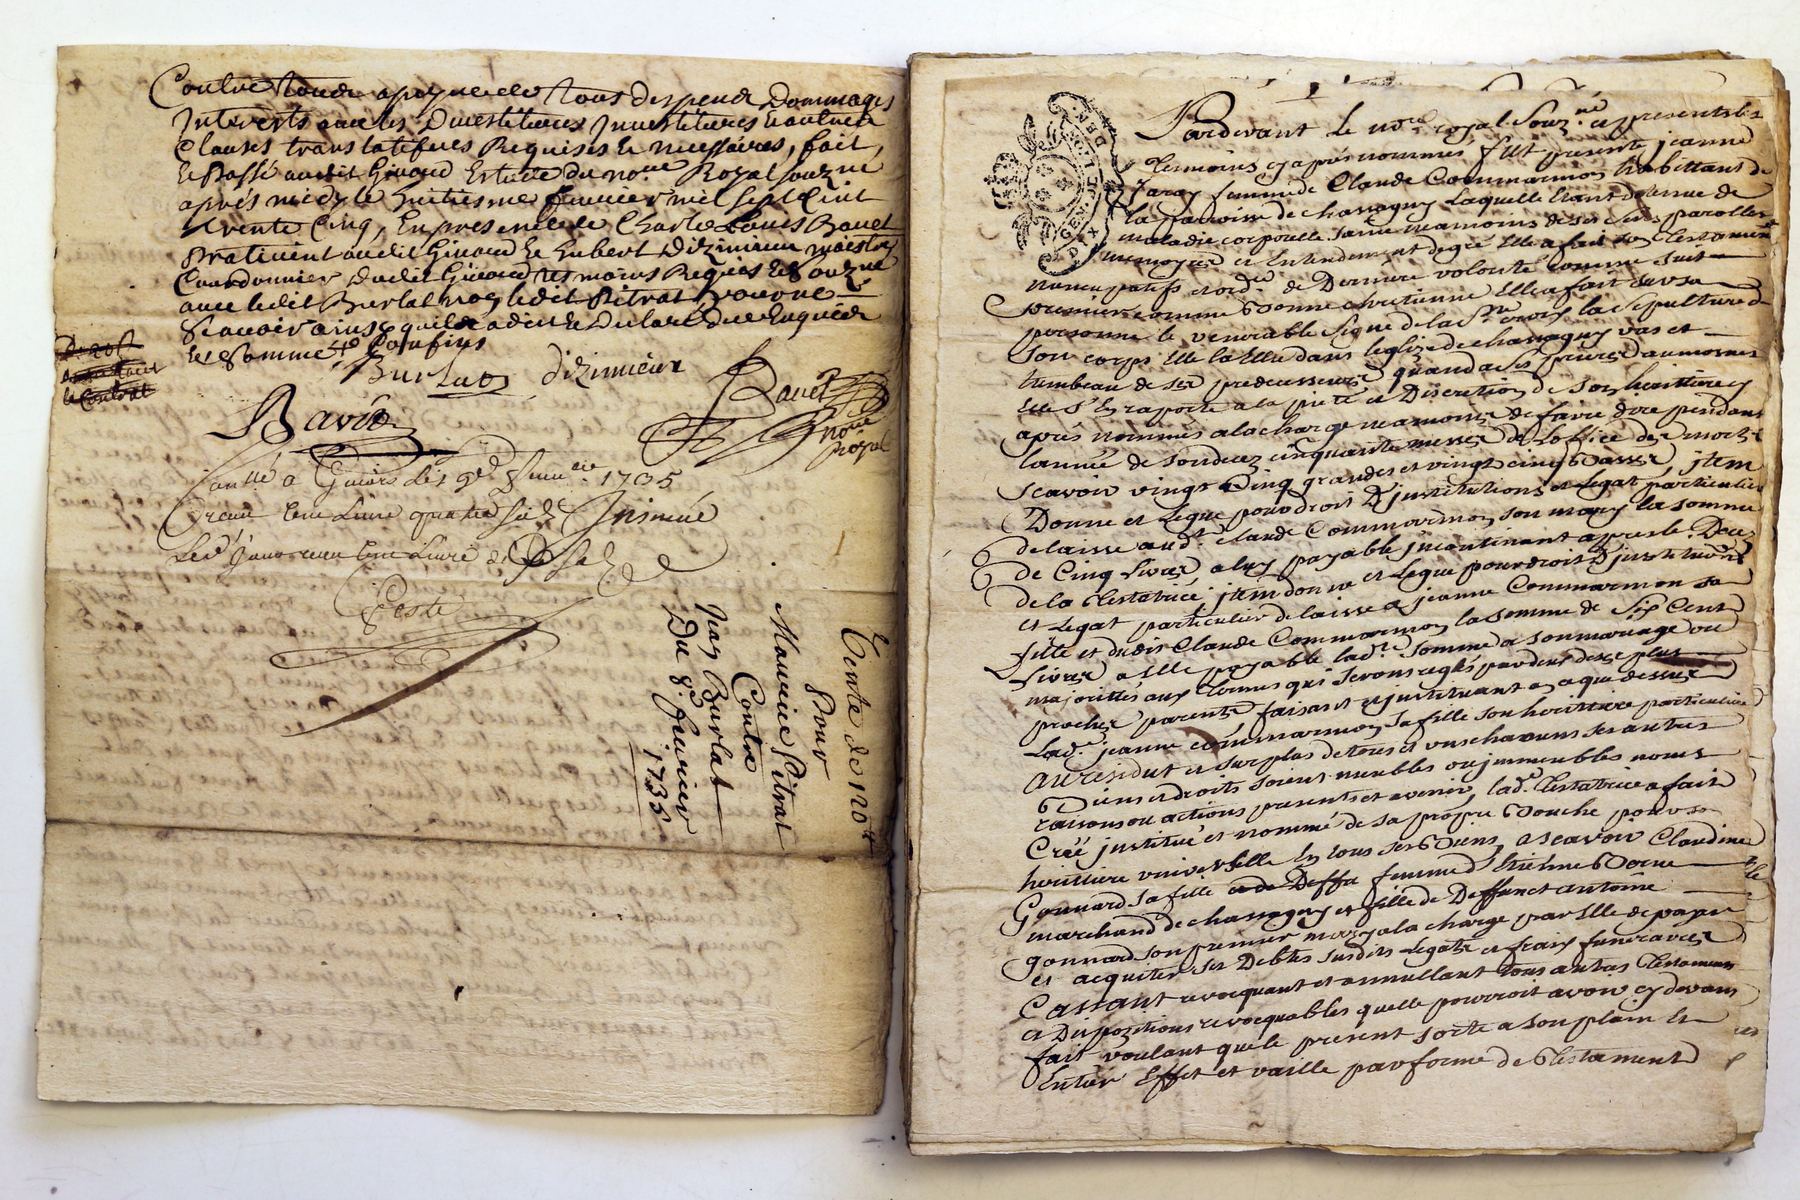 Contre Tonde a peyne de Tous despends Dommages
Interests avec les Divestitures Investitures
Clauses translatifves Requises & necessaires, fait,
& Passé audit Givord Estude du no.re Royal souz.né
aprés midy le huitiesme Janvier mil sept Cent
trente Cinq, En presence de Charle Louis Bonet
Pratitient audit Givord & hubert Dizimieux maistre
Courdonnier dudit Givord tesmoins Requis & Souz.né
avec le dit Burlat non ledit Pitrat pour ne
Scavoir ainsy quil a dit & Declaré de ce Enquis
&
Burlat dizimieux
Bonet
Bavio
no.re
royal
a Givors le 9.e 1735
Receu une Livre quatre sols Insinué
Led. jour receu une Livre
Teste
Vente de 120 ℔
Pour
Maurice Pitrat
Contre
Jean Burlat
Du 8.e Janvier
1735
GEN. DE LYON
DIX DEN.
Pardevant le no.re royal souz.né et presents les
tesmoins cy aprés nommés fut presente jeanne
Jaray femme de Claude Commarmon habittant de
la parroisse de chassagny Laquelle Etant detenue de
maladie corporelle saine neamoins de ses sens parolle
memoyre et Entendement de gré Elle a fait son Testament
noncupatif et ord.re de Derniere volonté comme suit
premier comme bonne chretienne Elle a fait sur sa
personne le venerable signe de la S.te croix la sepulture de
son corps Elle la Elle dans leglize de chassagny vas et
tumbeau de ses predecesseurs quand a ses prieres aumosnes
Elle S'En raporte a la pieté et Discretion de son heritiere cy
aprés nommés a la charge neamoins de faire dire pendant
lannée de son decez cinquante messes de Loffice des morts
scavoir vingt Cinq grandes et vingt cinq basses, jtem
Donne et Legue par droit Djnstitutions et Legat particulier
delaisse aud.t Claude Commarmon son mary la somme
de Cinq Livres a luy payable jncontinant apres le Deces
de la Testatrice jtem donne et Legue par droit Djnstitutions
et Legat particulier delaisse a jeanne Commarmon sa
fille et dudit Claude Commarmon la somme de Six Cent
Livres a Elle payable lad.e somme a son mariage ou
majorittés aux termes qui seront reglés par deux de ses plus
proches parents, faisant et jnstituant en ce que dessus
Lad.e jeanne commarmon sa fille son heritiere particuliere
Au residut et surplus de tous et uns chacuns ses autres
biens et droits soient meubles ou jmmeubles noms
raisons ou actions presents et avenir, lad.e Testatrice a fait
Créé justitué et nommé de sa propre bouche pour sa
heritiere universelle En tous ses biens, ascavoir Claudine
Gonnard sa fille femme d'Etienne borne
marchand de chassagny et fille de Deffunct antoine
gonnard son premier mary a la charge par Elle de payer
et acquiter ses Debtes susdits Legats et fraix funeraires
Cassant revocquant et annullant tous autres Testaments
et Dispositions revocquables quelle pourroit avoir cy devant
fait voulant que le present sorte a son plain Et
Entier Effet et vaille par forme de Testament